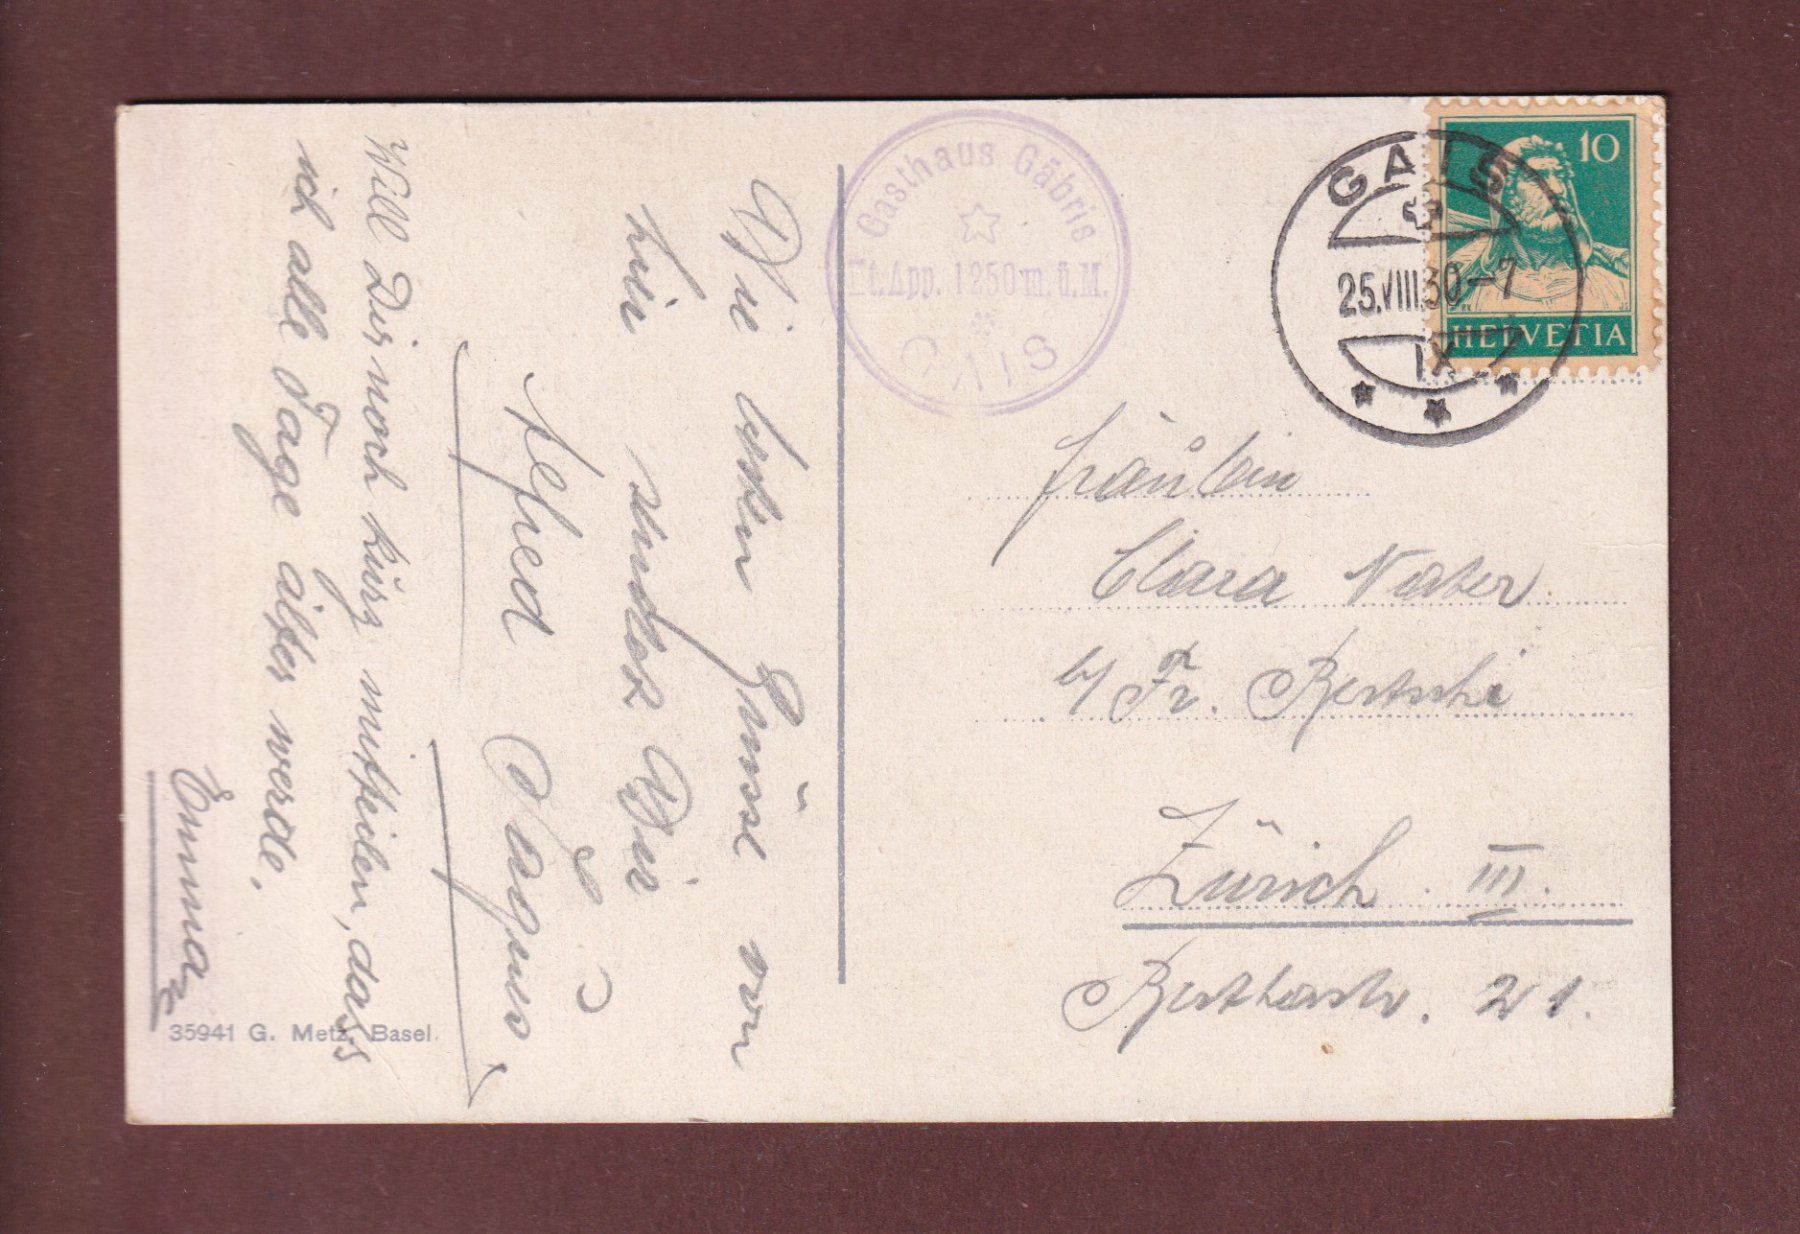 Die besten Grüsse von
hier sendet Dir
Alfred
Will Dir noch kurz mitteilen, dass
ich alle Tage älter werde.
Emma
35941 G. Metz, Basel
Gasthaus Gäbris
Kt. App. 1250 m. ü. M.
GAIS
GAIS
25.VIII.30-7
IX
10
HELVETIA
Fräulein
Clara Nater
b/ Fr. Bertschi
Zürich III.
21.